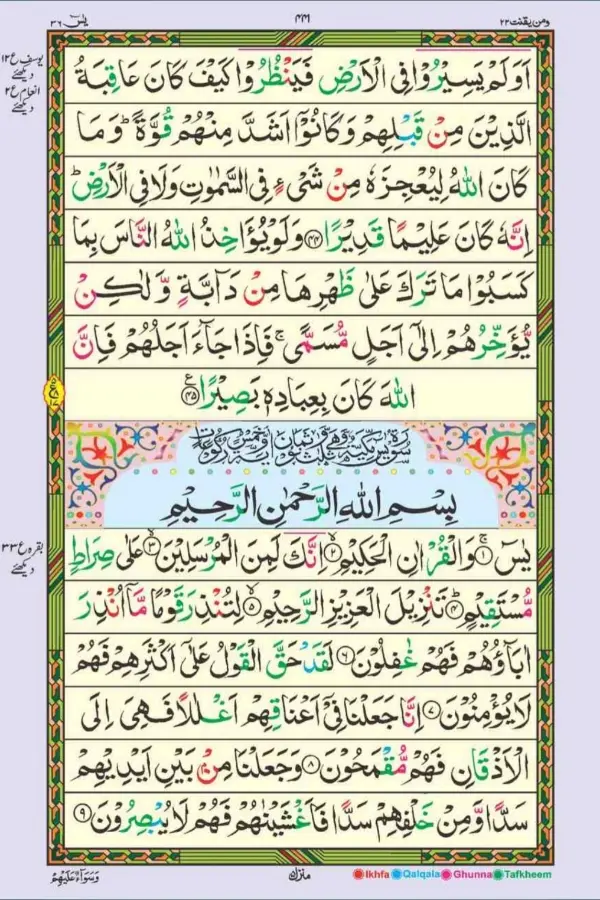 ومن يقنت ٢٢
٤٤١
يٰسٓ ٣٦
اَوَلَمْ يَسِيْرُوْا فِي الْاَرْضِ فَيَنْظُرُوْا كَيْفَ كَانَ عَاقِبَةُ
الَّذِيْنَ مِنْ قَبْلِهِمْ وَكَانُوْۤا اَشَدَّ مِنْهُمْ قُوَّةً ؕ وَمَا
كَانَ اللّٰهُ لِيُعْجِزَهٗ مِنْ شَيْءٍ فِي السَّمٰوٰتِ وَلَا فِي الْاَرْضِ ؕ
اِنَّهٗ كَانَ عَلِيْمًا قَدِيْرًا ﴿٤٤﴾ وَلَوْ يُؤَاخِذُ اللّٰهُ النَّاسَ بِمَا
كَسَبُوْا مَا تَرَكَ عَلٰى ظَهْرِهَا مِنْ دَآبَّةٍ وَّلٰكِنْ
يُّؤَخِّرُهُمْ اِلٰۤى اَجَلٍ مُّسَمًّى ۚ فَاِذَا جَآءَ اَجَلُهُمْ فَاِنَّ
اللّٰهَ كَانَ بِعِبَادِهٖ بَصِيْرًا ﴿٤٥﴾ ع
بِسْمِ اللّٰهِ الرَّحْمٰنِ الرَّحِيْمِ
يٰسٓ ﴿١﴾ ۚ وَالْقُرْاٰنِ الْحَكِيْمِ ﴿٢﴾ اِنَّكَ لَمِنَ الْمُرْسَلِيْنَ ﴿٣﴾ عَلٰى صِرَاطٍ
مُّسْتَقِيْمٍ ﴿٤﴾ ؕ تَنْزِيْلَ الْعَزِيْزِ الرَّحِيْمِ ﴿٥﴾ لِتُنْذِرَ قَوْمًا مَّاۤ اُنْذِرَ
اٰبَآؤُهُمْ فَهُمْ غٰفِلُوْنَ ﴿٦﴾ لَقَدْ حَقَّ الْقَوْلُ عَلٰۤى اَكْثَرِهِمْ فَهُمْ
لَا يُؤْمِنُوْنَ ﴿٧﴾ اِنَّا جَعَلْنَا فِيْۤ اَعْنَاقِهِمْ اَغْلٰلًا فَهِيَ اِلَى
الْاَذْقَانِ فَهُمْ مُّقْمَحُوْنَ ﴿٨﴾ وَجَعَلْنَا مِنْۢ بَيْنِ اَيْدِيْهِمْ
سَدًّا وَّمِنْ خَلْفِهِمْ سَدًّا فَاَغْشَيْنٰهُمْ فَهُمْ لَا يُبْصِرُوْنَ ﴿٩﴾
يوسف ع ١٢
دیکھئے
انعام ع ٢
دیکھئے
بقرہ ع ٣٣
دیکھئے
وَسَوَآءٌ عَلَيْهِمْ
Ikhfa Qalqala Ghunna Tafkheem